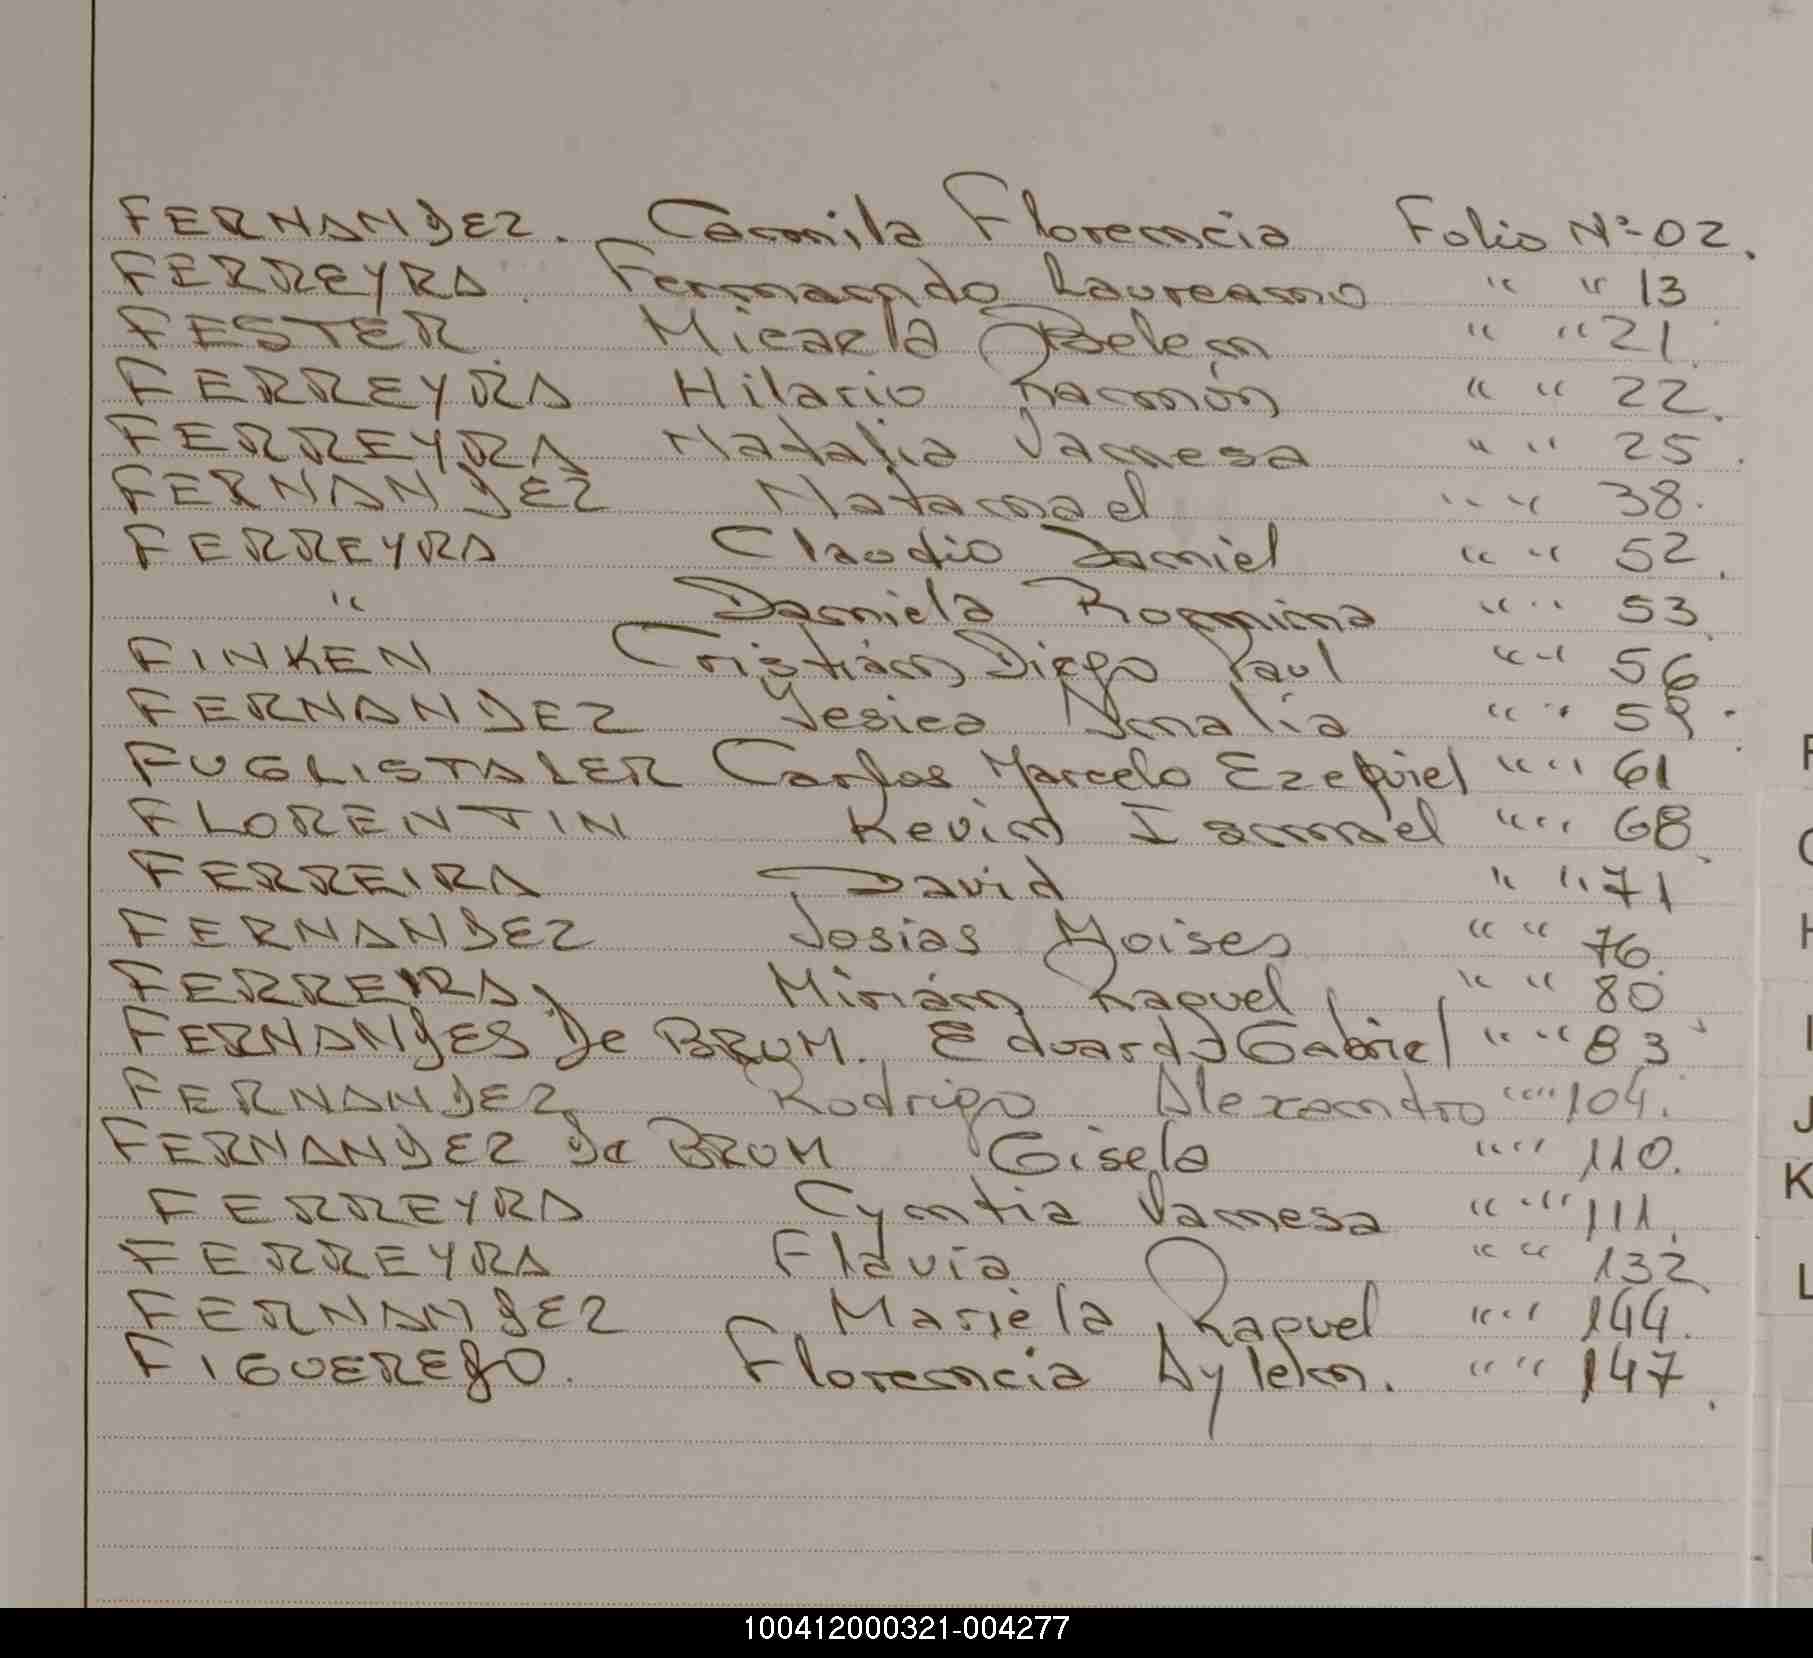 FERNANDEZ. Camila Florencia Folio Nº 02.
FERREYRA. Fernando Laureano " " 13
FESTER. Micaela Belen " " 21
FERREYRA Hilario Ramón " " 22.
FERREYRA Natalia Vanesa " " 25.
FERNANDEZ Natanael " " 38.
FERREYRA Claudio Daniel " " 52.
" Daniela Romina " " 53.
FINKEN Cristián Diego Paul " " 56
FERNANDEZ Yesica Amalia " " 59.
FUGLISTALER Carlos Marcelo Ezequiel " " 61
FLORENTIN Kevin Ismael " " 68
FERREIRA David " " 71
FERNANDEZ Josias Moises " " 76.
FERREIRA, Mirián Raquel " " 80
FERNANDES De BRUM. Eduardo Gabriel " " 83
FERNANDEZ Rodrigo Alexandro " " 104.
FERNANDEZ De BRUM Gisela " " 110.
FERREYRA Cyntia Vanesa " " 111.
FERREYRA Flavia " " 132
FERNANDEZ Mariela Raquel " " 144.
FIGUEREDO. Florencia Aylen. " " 147.
H
J
K
L
100412000321-004277